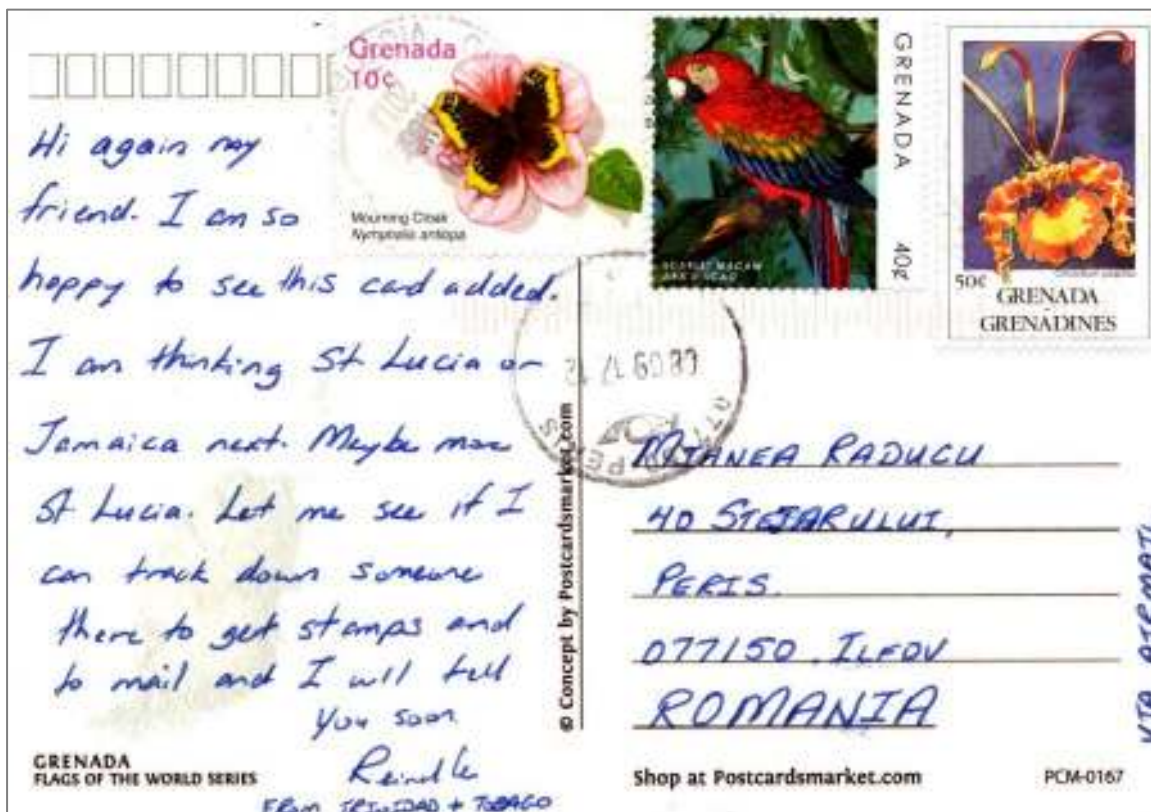 Grenada
10¢
Mourning Cloak
Nymphalis antiopa
GRENADA
40¢
SCARLET MACAW
50¢
GRENADA
GRENADINES
Hi again my
friend. I am so
happy to see this card added.
I am thinking St Lucia or
Jamaica next. Maybe more
St Lucia. Let me see if I
can track down someone
there to get stamps and
to mail and I will tell
you soon
Reindle
FROM TRINIDAD + TOBAGO
© Concept by Postcardsmarket.com
MIANEA RADUCU
40 STEJARULUI,
PERIS.
077150. ILFOV
ROMANIA
VIA AIRMAIL
GRENADA
FLAGS OF THE WORLD SERIES
Shop at Postcardsmarket.com
PCM-0167